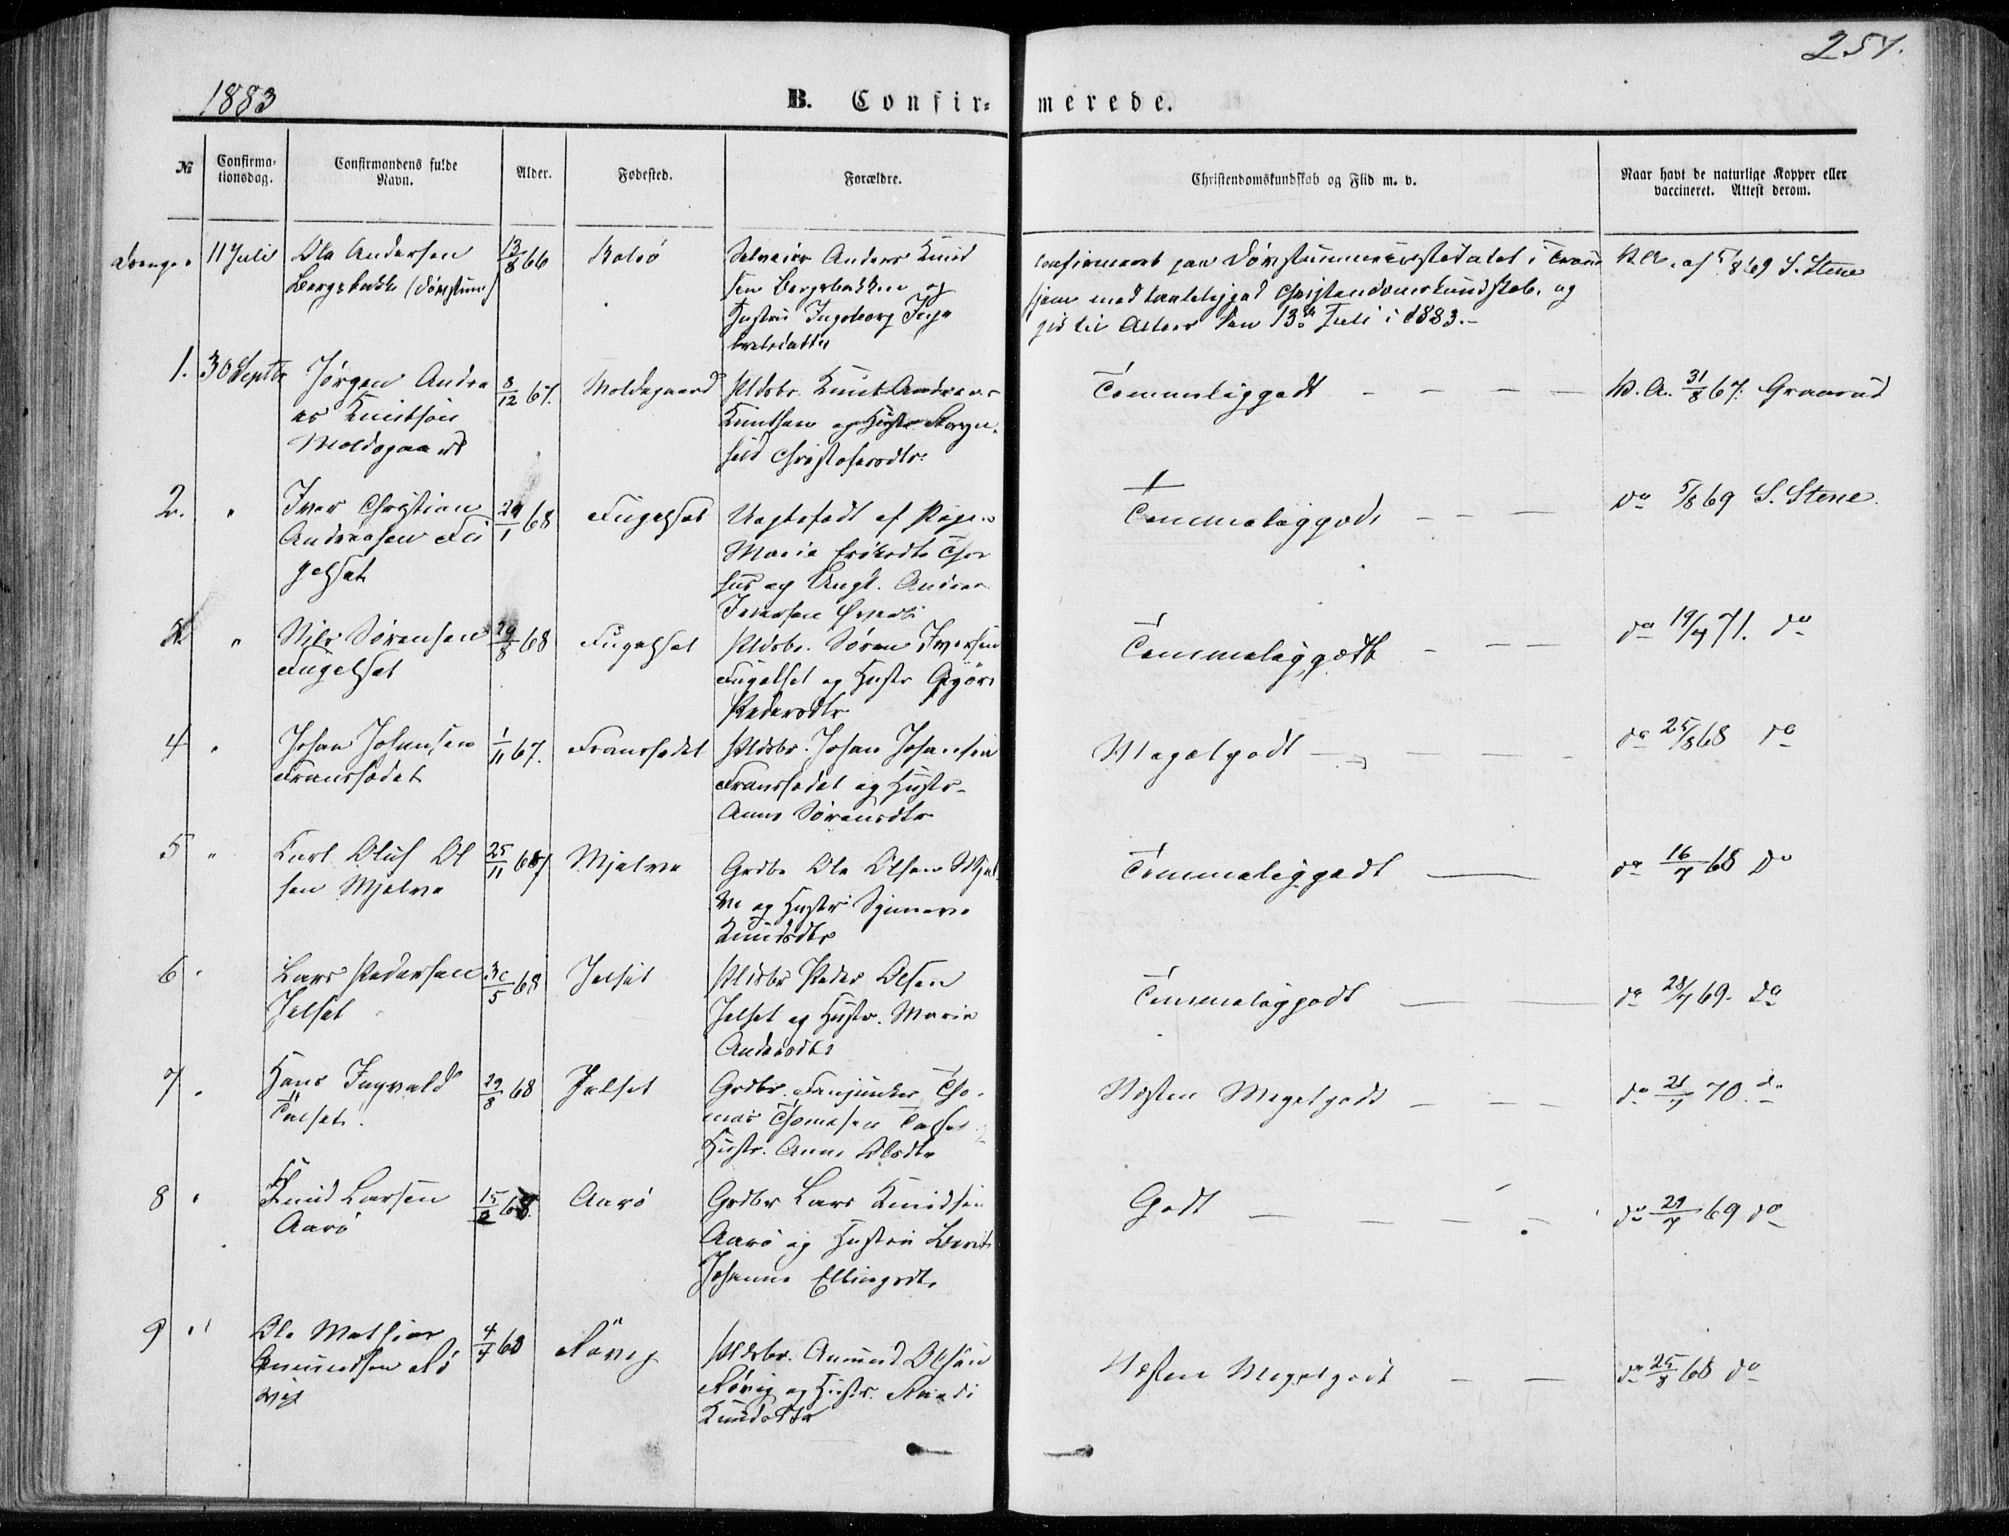 1883
B. Confir-
merede.
254.
№
Confirma-
tionsdag.
Confirmandens fulde
Navn.
Alder.
Fødested.
Forældre.
Christendomskundskab og Flid m. v.
Naar havt de naturlige Kopper eller
vaccineret. Attest derom.
Drenge.
11 Juli
Ola Andersen
Bergsbakk (Døvstum)
13/8 66
Bolsø
Selveier Anders Knud
sen Bergsbakken og
Hustru Ingeborg Inge
bretsdatter
Confirmeret paa Døvstummeinstitutet i Trond
hjem med taaleliggod Christendomskundskab, og
gik til Alters den 13de Juli i 1883.-
V.A. af 5/8 69 S. Stene
1.
30 Septbr
Jørgen Andre
as Knutsøn
Moldegaard
8/12 67.
Moldegaard
Pldsbr. Knut Andreas
Knutsen og Hustr Ragn-
hild Christofersdtr.
Temmeliggodt - - -
V.A. 31/8 67. Graarud
2.
"
Iver Christian
Andreasen Fu
gelset
29/1 68
Fugelset
Uægtefødt af Pige
Marie Eriksdtr Thor
hus og Ungk. Andreas
Iversen
Temmeliggodt - - -
do 5/8 69 S. Stene.
3.
"
Nils Sørensen
Fugelset
29/8 68
Fugelset
Pldsbr. Søren Iversen
Fugelset og Hustr Gjør
Pedersdtr
Temmeliggodt - - -
do 19/7 71. do
4
"
Johan Johansen
Franssædet
1/11 67.
Franssædet
Pldsbr. Johan Johansen
Franssædet og Hustr-
Anne Sørensdtr
Megetgodt - - -
do 25/8 68 do
5
"
Carl Oluf Ol
sen Mjelve
25/11 67
Mjelve
Grdbr Ole Olsen Mjel
ve og Hustr Synneve
Knudsdtr
Temmeliggodt -
do 16/7 68 do
6
"
Lars Pedersen
Jelset
30/5 68
Jelset
Pldsbr Peder Olsen
Jelset og Hustr. Marie
Andersdtr
Temmeliggodt - -
do 28/7 69. do
7
"
Hans Ingvald
Talset.
29/8 68
Jelset
Grdbr. Fanejunker Tho-
mas Thomesen Talset
Hustr. Anne Olsdtr
Næsten Megetgodt - - -
do 21/7 70. do
8
"
Knud Larsen
Aarø
15/2 68.
Aarø
Grdbr Lars Knudsen
Aarø og Hustru Berit
Johanne Ellingsdtr
Godt - - - -
do 29/7 69 do
9
"
Ola Mathias
Amundsen Rø
vig
4/7 68
Røvig
Pldsbr. Amund Olsen
Røvig og Hustr. Randi
Knudsdtr
Næsten Megetgodt - -
do 25/8 68 do